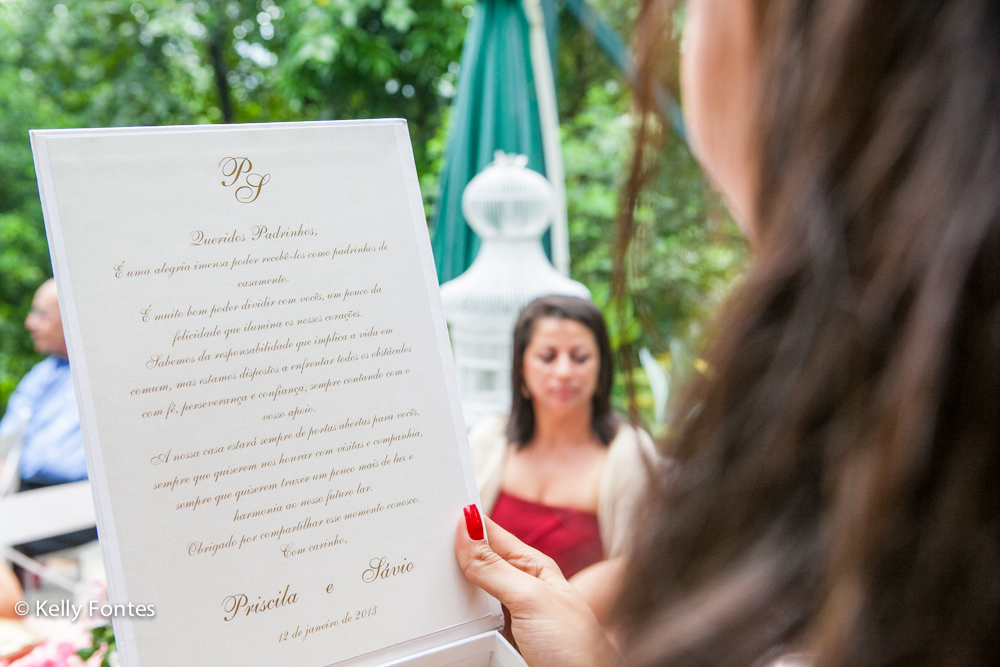 P
S
Queridos Padrinhos,
É uma alegria imensa poder recebê-los como padrinhos de
casamento.
É muito bom poder dividir com vocês, um pouco da
felicidade que ilumina os nossos corações.
Sabemos da responsabilidade que implica a vida em
comum, mas estamos dispostos a enfrentar todos os obstáculos
com fé, perseverança e confiança, sempre contando com o
vosso apoio.
A nossa casa estará sempre de portas abertas para vocês,
sempre que quiserem nos honrar com visitas e companhia,
sempre que quiserem trazer um pouco mais de luz e
harmonia ao nosso futuro lar.
Obrigado por compartilhar esse momento conosco.
Com carinho,
Priscila e Sávio
12 de janeiro de 2013
© Kelly Fontes